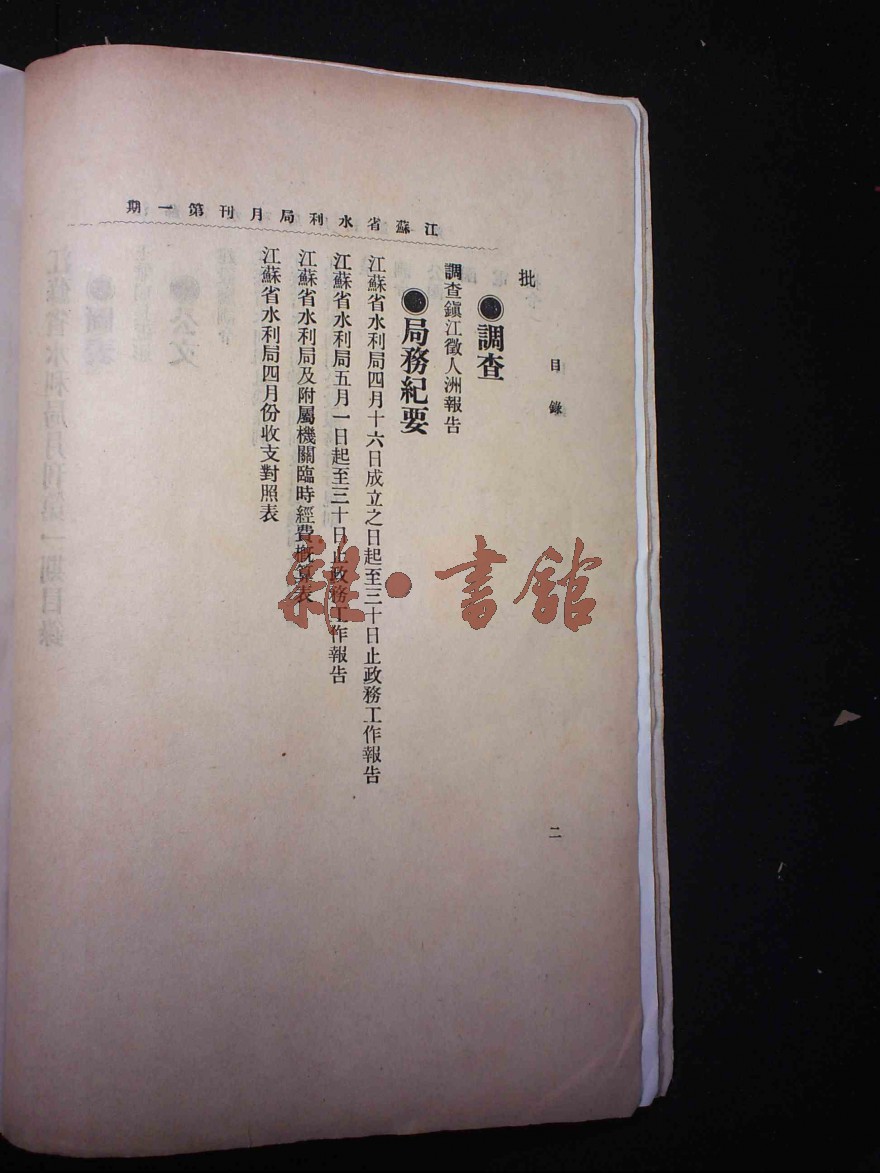 江蘇省水利局月刊第一期
目錄
二
批
●調查
調查鎮江徵人洲報告
●局務紀要
江蘇省水利局四月十六日成立之日起至三十日止政務工作報告
江蘇省水利局五月一日起至三十日止政務工作報告
江蘇省水利局及附屬機關臨時經費概算表
江蘇省水利局四月份收支對照表
雜·書館